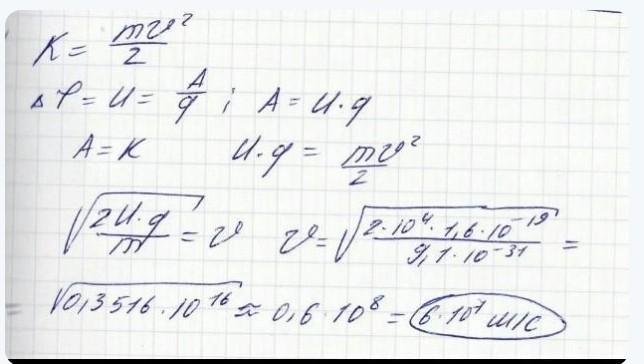 K = mv²/2
Δφ = U = A/q ; A = U·q
A = K U·q = mv²/2
√(2U·q/m) = v v = √(2·10⁴·1,6·10⁻¹⁹/9,1·10⁻³¹) =
= √(0,3516·10¹⁶) ≈ 0,6·10⁸ = 6·10⁷ м/с